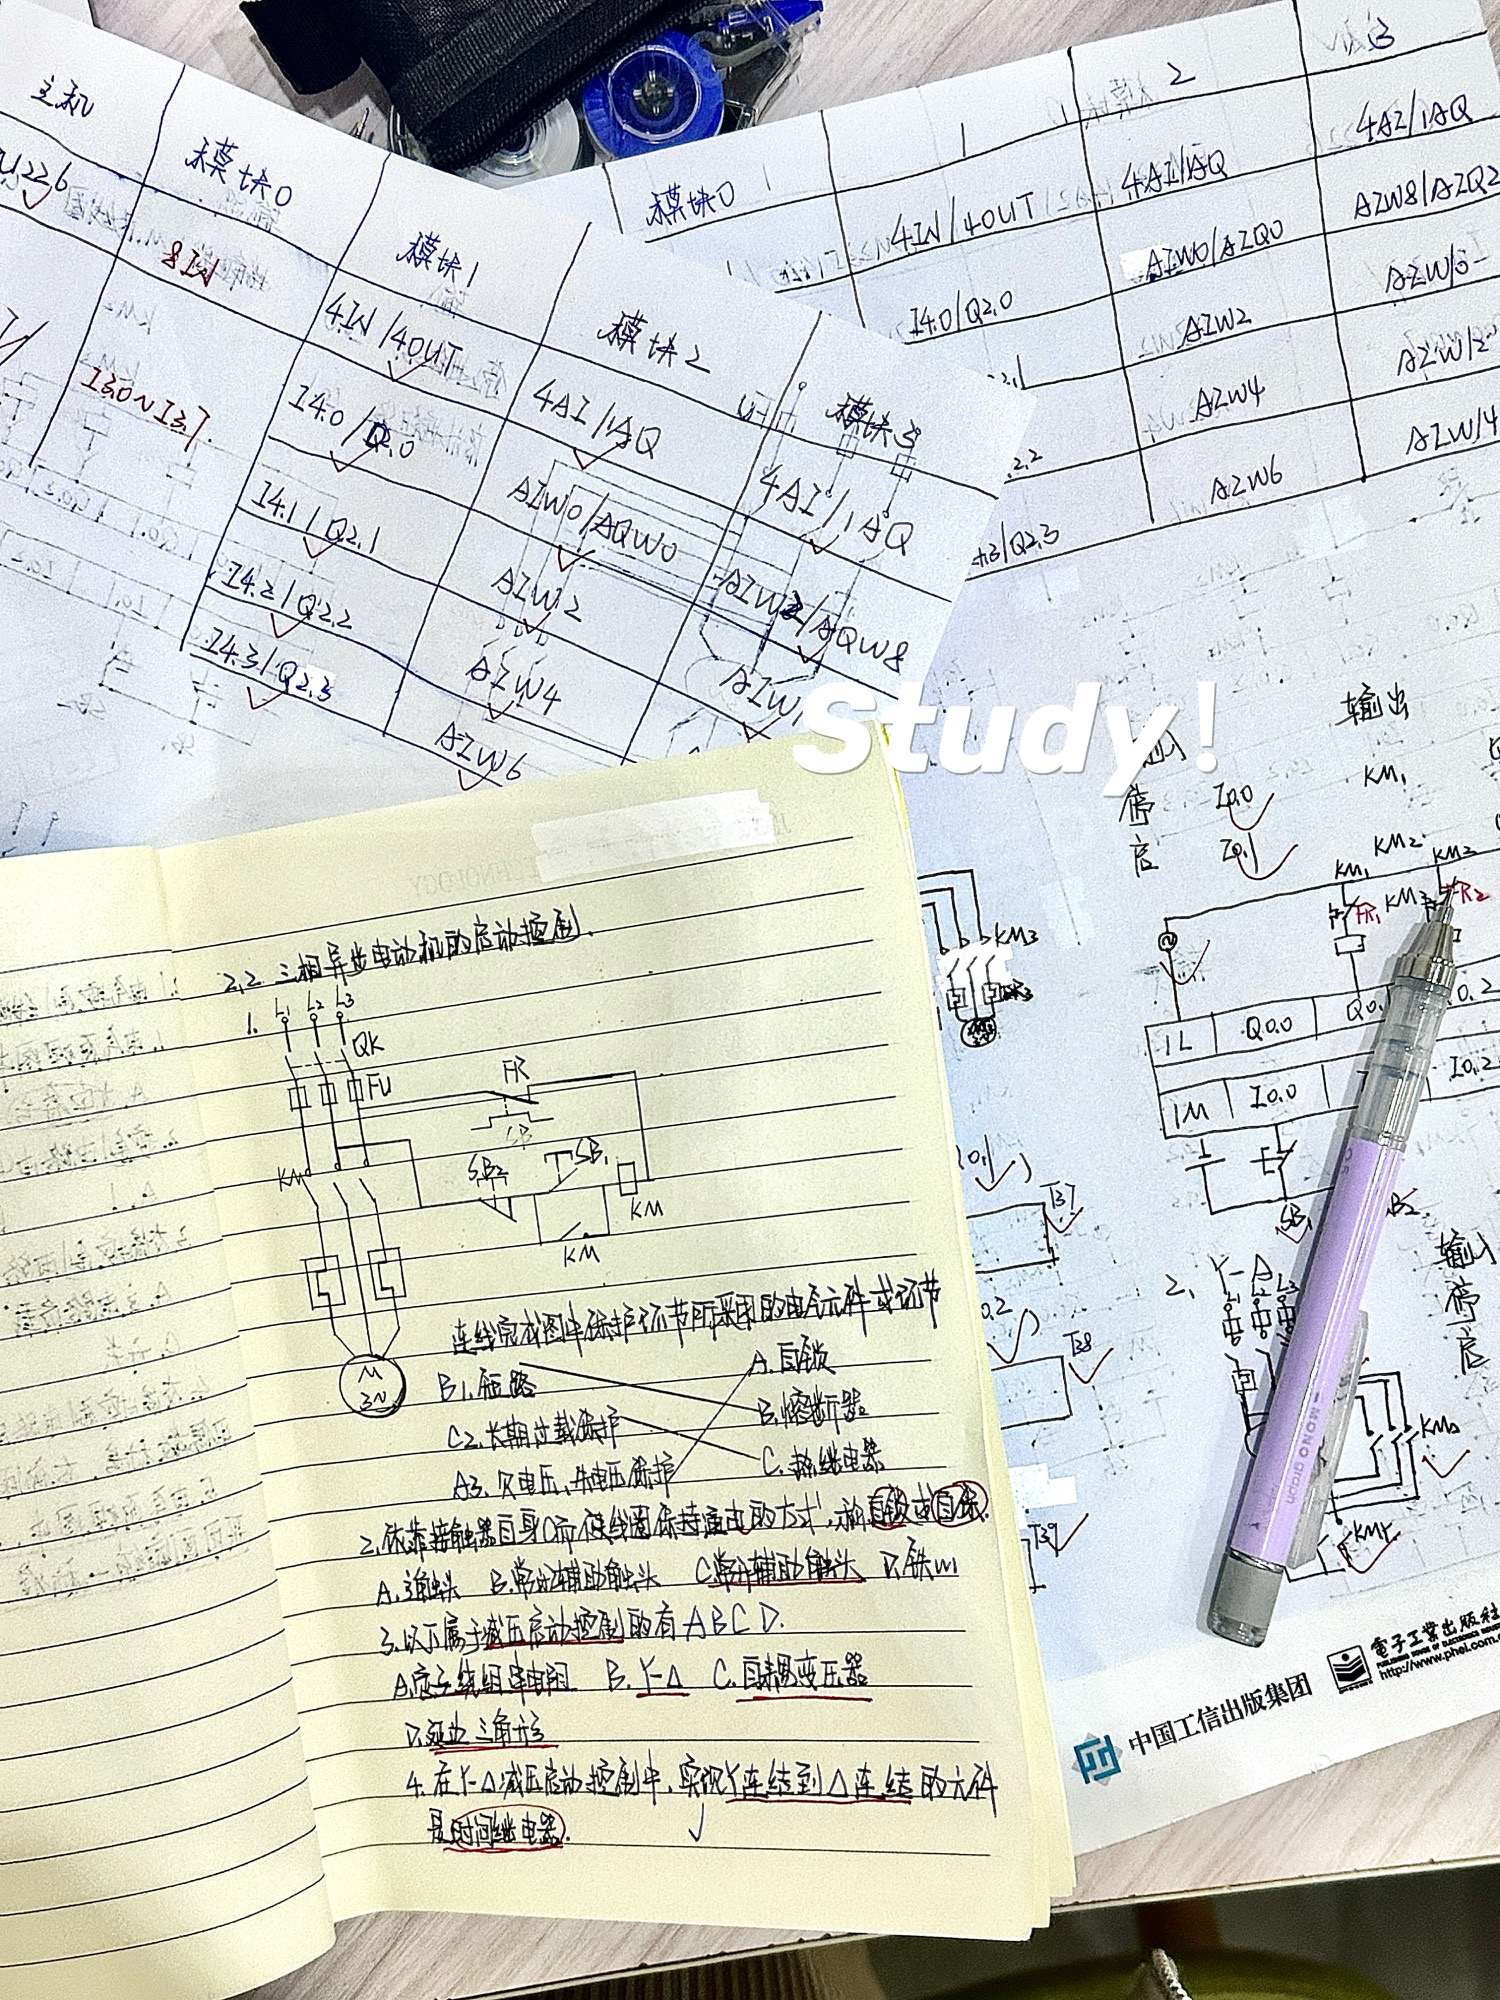 主机
模块0
模块1
模块2
模块3
8IW
4IN/4OUT
4AI/1AQ
4AI/1AQ
I3.0~I3.7
I4.0/Q2.0
AIW0/AQW0
I4.1/Q2.1
AIW2
I4.2/Q2.2
AIW4
I4.3/Q2.3
AIW6
模块0
1
2
4IN/4OUT
4AI/1AQ
4AI/1AQ
I4.0/Q2.0
AIW0/AIQ0
AIW8/AIQ2
AIW2
AIW4
AIW6
Study!
输出
停
启
I0.0
I0.1
KM1
KM2
KM3
KM1
KM2
FR1
FR2
1L
Q0.0
1M
I0.0
I0.2
SB1
KM3
T37
T38
T39
2.
Y-Δ
输入
停
启
KMY
MONO graph
中国工信出版集团
電子工業出版社
PUBLISHING HOUSE OF ELECTRONICS INDUSTRY
2.2 三相异步电动机的启动控制.
1.
L1 L2 L3
QK
FU
FR
SB2
SB1
KM
KM
KM
M
3~
连线完成图中保护环节所采用的电气元件或环节
B1.短路
A.自锁
C2.长期过载保护
B.熔断器
A3.欠电压、失电压保护
C.热继电器
2.依靠接触器自身C而使线圈保持通电的方式,称自锁或自保.
A.主触头 B.常分辅助触头 C.常分辅助触头 D.铁m
3.以下属于减压启动控制的有ABCD.
A.定子绕组串电阻 B.Y-Δ C.自耦变压器
D.延边三角形
4.在Y-Δ减压启动控制中,实现Y连结到Δ连结的元件
是时间继电器.